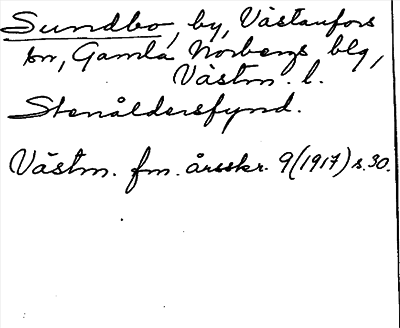 Sundbo, by, Västanfors
sn, Gamla Norbergs blg,
Västm. l.
Stenåldersfynd.
Västm. fm. årsskr. 9(1917) s.30.